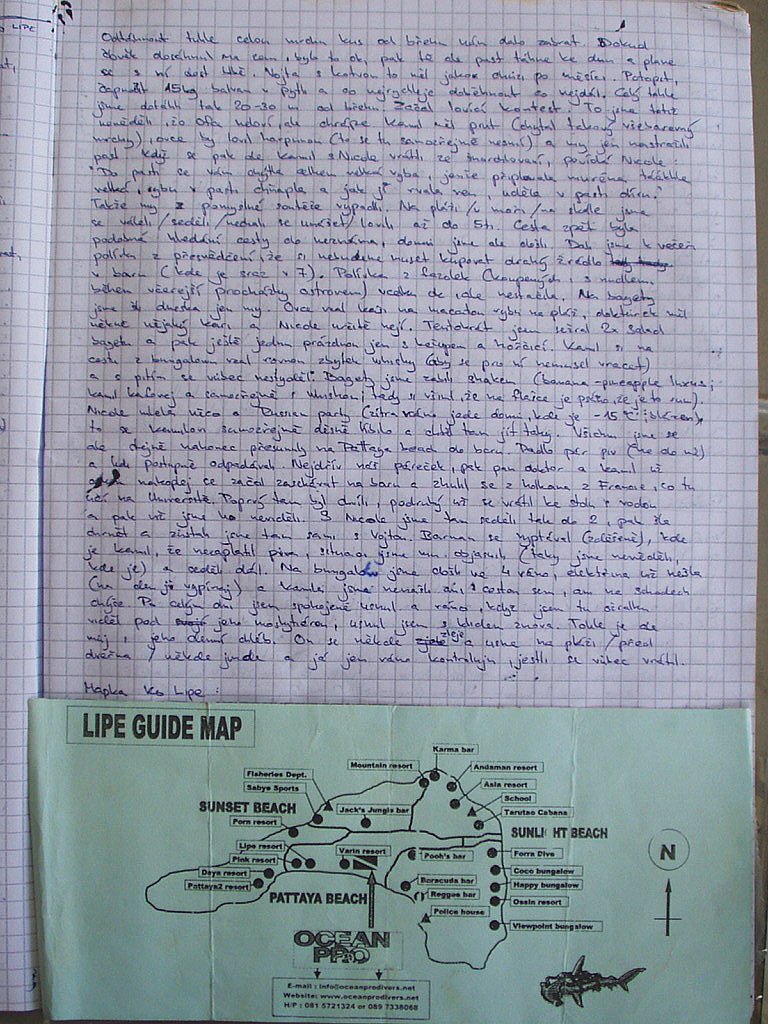 LIPE
Odtáhnout tuhle celou kus od břehu nám dalo zabrat. Dokud
člověk dosáhnul na zem, bylo to ok, pak tě ale past táhne ke dnu a plave
se s ní dost blbě. Vojta s kotvou to měl jakoby chůzi po měsíci. Potopit,
15kg balvan v pytli a co nejrychleji doběhnout co nejdál. Celý tohle
jsme dotáhli tak 20-30 m od břehu. Začal lovící kontest. To jsme totiž
nevěděli, že ale Kamil měl prut (chytal takový všebarevný
mrchy), ovce by lovil harpunou (to se tu samozřejmě nesmí) a my jen nastražili
past. Když se pak ale Kamil s Nicole vrátili ze šnorchlování, povídá Nicole:
"Do pasti se vám chytla celkem velká ryba, jenže připlavala muréna
velká, rybu v pasti chňapla a jak ji rvala ven, udělala v pasti díru."
Takže my z pomyslné soutěže vypadli. Na pláži / v moři / na skále jsme
se váleli / seděli / nechali se unášet / lovili až do 5ti. Cesta zpět byla
podobná hledání cesty do neznáma, domů jsme ale došli. Dali jsme k večeři
polívku z přesvědčení, že si nebudeme muset kupovat drahý žrádlo
v baru (kde je sraz v 7). Polívka z fazolek (koupených s nudlema,
během včerejší procházky ostrovem) vcelku ok, ale nestačila. Na bagety
jsme šli dneska jen my. Ovce vzal kaši na macatou rybu na pláži, doktůrek měl
někde nějaký kari a Nicole určitě nejí. Tentokrát jsem sežral 2x salad
bagetu a pak ještě jednu prázdnou jen s kečupem a hořčicí. Kamil si na
cestu z bungalovu vzal rovnou zbytek whisky (aby se pro ní nemusel vracet)
a s pitím se vůbec nestyděl. Bagety jsme zalili shakem (banana-pineapple luxus;
Kamil kafovej a samozřejmě s whiskou; tady si všiml, že na flašce je psáno, že je to rum).
Nicole mlela něco o Duesan party (zítra ráno jede domů, kde je -15°C :blázen),
to se Kamilovi samozřejmě děsně líbilo a chtěl tam jít taky. Všichni jsme se
ale stejně nakonec přesunuli na Pattaya beach do baru. Padlo pár piv (ne do mě)
a lidi postupně odpadávali. Nejdřív náš páreček, pak pan doktor a Kamil už
nakoplej se začal zaschávat na baru a zhulil se z holkama z Francie, co tu
učí na Universitě. Poprvý tam byl chvíli, podruhý už se vrátil ke stolu s vodou
a pak už jsme ho neviděli. S Nicole jsme tam seděli tak do 2, pak šla
chrnět a zůstali jsme tam sami s Vojtou. Barman se vyptával (zděšeně), kde
je Kamil, že nezaplatil piva, situaci jsme mu objasnili (taky jsme nevěděli,
kde je) a seděli dál. Na bungalov jsme došli ve 4 ráno, elektřina už nešla
(na den ji vypínaj) a Kamila jsme nenašli ani cestou sem, ani na schodech
chýše. Po celym dni jsem spokojeně usnul a ráno, když jsem tu očkalku
viděl pod jeho moskytiérou, usnul jsem s klidem znova. Tohle je ale
můj i jeho denní chléb. On se někde zleje a usne na pláži / před
dvěrma / někde jinde a já jen ráno kontroluju, jestli se vůbec vrátil.
Mapka Ko Lipe:
LIPE GUIDE MAP
Karma bar
Mountain resort
Andaman resort
Fisheries Dept.
Asia resort
Sabye Sports
School
SUNSET BEACH
Jack's Jungle bar
Tarutao Cabana
Porn resort
SUNLIGHT BEACH
Lipe resort
Varin resort
Pooh's bar
Forra Dive
N
Pink resort
Coco bungalow
Daya resort
Baracuda bar
Happy bungalow
Pattaya2 resort
PATTAYA BEACH
Reggae bar
Ossin resort
Police house
Viewpoint bungalow
OCEAN
PRO
E-mail : info@oceanprodivers.net
Website: www.oceanprodivers.net
H/P : 081 5721324 or 089 7338068